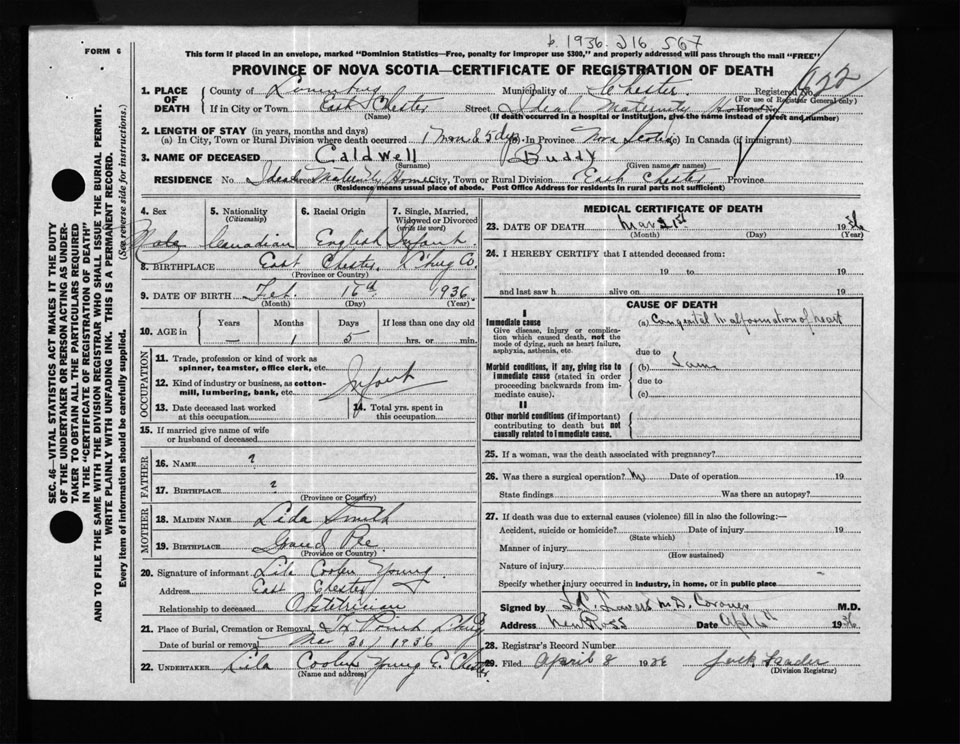 b. 1936. 216 567
FORM 6
This form if placed in an envelope, marked "Dominion Statistics—Free, penalty for improper use $300," and properly addressed will pass through the mail "FREE"
PROVINCE OF NOVA SCOTIA—CERTIFICATE OF REGISTRATION OF DEATH
1. PLACE OF DEATH
County of Lunenburg Municipality of Chester Registered No. 622
(For use of Registrar General only)
If in City or Town East Chester Street Ideal Maternity Home House No.
(Name) (If death occurred in a hospital or institution, give the name instead of street and number)
2. LENGTH OF STAY (in years, months and days)
(a) In City, Town or Rural Division where death occurred 1 mon & 5 dys (b) In Province Nova Scotia (c) In Canada (if immigrant)
3. NAME OF DECEASED Caldwell Buddy
(Surname) (Given name or names)
RESIDENCE No. Ideal Maternity Home City, Town or Rural Division East Chester Province
(Residence means usual place of abode. Post Office Address for residents in rural parts not sufficient)
4. Sex 5. Nationality (Citizenship) 6. Racial Origin 7. Single, Married, Widowed or Divorced (write the word)
Male Canadian English Infant
8. BIRTHPLACE East Chester, L'burg Co.
(Province or Country)
9. DATE OF BIRTH Feb. 16th 1936
(Month) (Day) (Year)
10. AGE in Years Months Days If less than one day old
— 1 5 hrs. or min.
OCCUPATION
11. Trade, profession or kind of work as spinner, teamster, office clerk, etc.
12. Kind of industry or business, as cotton-mill, lumbering, bank, etc. Infant
13. Date deceased last worked at this occupation 14. Total yrs. spent in this occupation
15. If married give name of wife or husband of deceased
FATHER
16. NAME ?
17. BIRTHPLACE ?
(Province or Country)
MOTHER
18. MAIDEN NAME Lida Smith
19. BIRTHPLACE Grand Pre
(Province or Country)
20. Signature of informant Lila Coolen Young
Address East Chester
Relationship to deceased Obstetrician
21. Place of Burial, Cremation or Removal Fox Point L'burg
Date of burial or removal Mar 30/1936
22. UNDERTAKER Lila Coolen Young E. Chester
(Name and address)
MEDICAL CERTIFICATE OF DEATH
23. DATE OF DEATH Mar 21st 1936
(Month) (Day) (Year)
24. I HEREBY CERTIFY that I attended deceased from:
19 to 19
and last saw h alive on 19
CAUSE OF DEATH
I
Immediate cause
Give disease, injury or complication which caused death, not the mode of dying, such as heart failure, asphyxia, asthenia, etc.
(a) Congenital Malformation of heart
due to
Morbid conditions, if any, giving rise to immediate cause (stated in order proceeding backwards from immediate cause).
(b) Same
due to
(c)
II
Other morbid conditions (if important) contributing to death but not causally related to immediate cause.
25. If a woman, was the death associated with pregnancy?
26. Was there a surgical operation? No Date of operation 19
State findings Was there an autopsy?
27. If death was due to external causes (violence) fill in also the following:—
Accident, suicide or homicide? Date of injury 19
(State which)
Manner of injury
(How sustained)
Nature of injury
Specify whether injury occurred in industry, in home, or in public place
Signed by M.D. Coroner M.D.
Address New Ross Date Apl 6th 1936
28. Registrar's Record Number
29. Filed April 8 1936 Jack
(Division Registrar)
SEC. 46—VITAL STATISTICS ACT MAKES IT THE DUTY
OF THE UNDERTAKER OR PERSON ACTING AS UNDERTAKER TO OBTAIN ALL THE PARTICULARS REQUIRED
IN THE "CERTIFICATE OF REGISTRATION OF DEATH"
AND TO FILE THE SAME WITH THE DIVISION REGISTRAR WHO SHALL ISSUE THE BURIAL PERMIT.
WRITE PLAINLY WITH UNFADING INK. THIS IS A PERMANENT RECORD.
Every item of information should be carefully supplied. (See reverse side for instructions.)